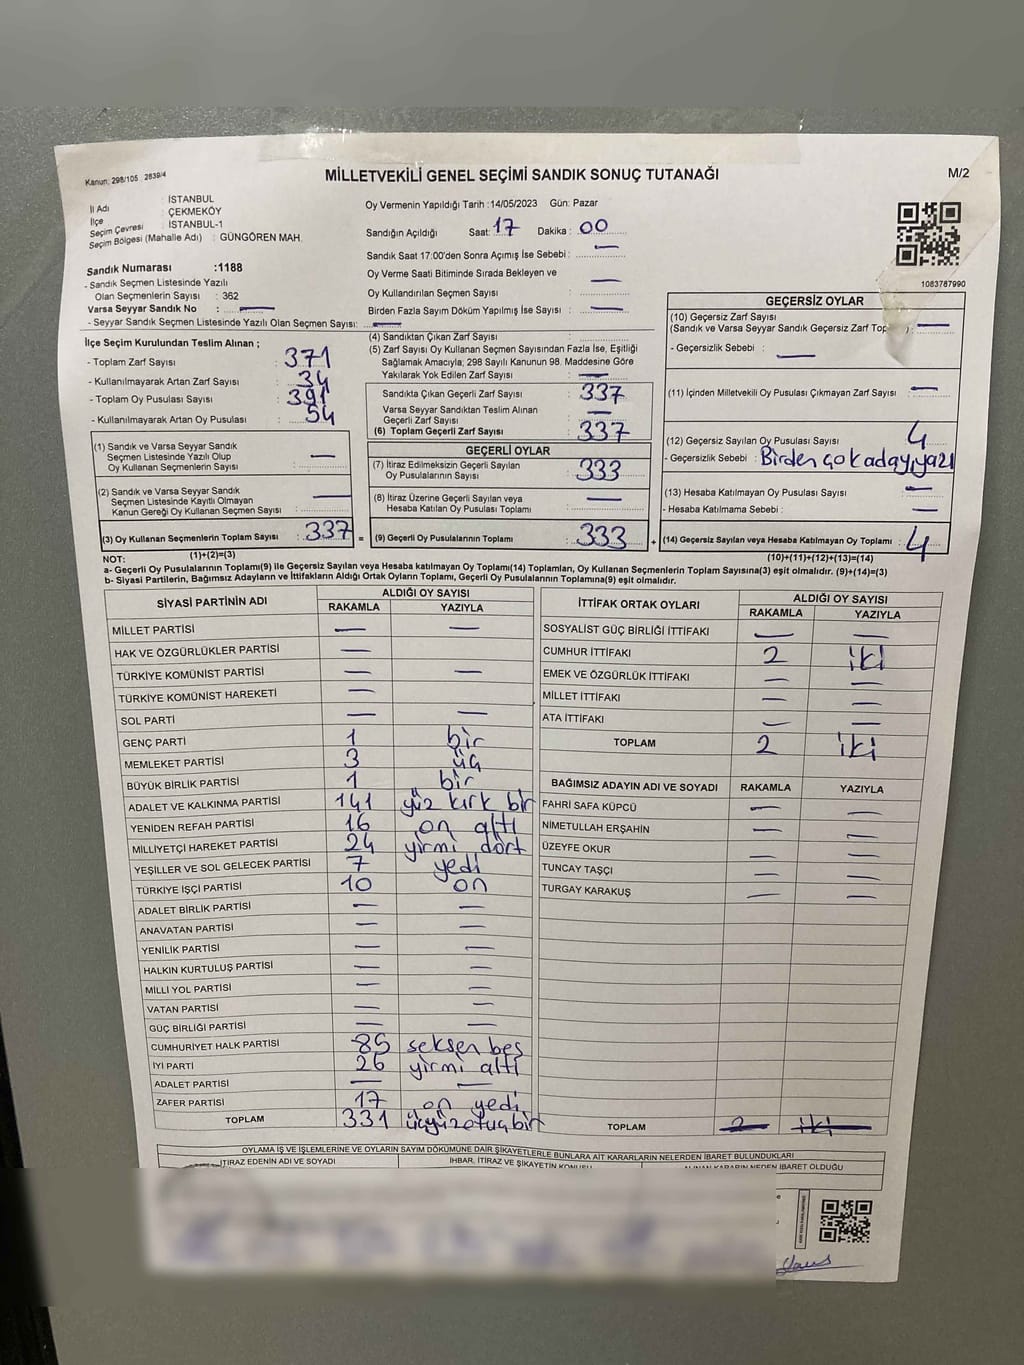 Kanun: 298/105 2839/4
MİLLETVEKİLİ GENEL SEÇİMİ SANDIK SONUÇ TUTANAĞI
M/2
İl Adı : İSTANBUL
İlçe : ÇEKMEKÖY
Seçim Çevresi : İSTANBUL-1
Seçim Bölgesi (Mahalle Adı) : GÜNGÖREN MAH.
Sandık Numarası :1188
- Sandık Seçmen Listesinde Yazılı
Olan Seçmenlerin Sayısı : 362
Varsa Seyyar Sandık No : —
- Seyyar Sandık Seçmen Listesinde Yazılı Olan Seçmen Sayısı: —
Oy Vermenin Yapıldığı Tarih :14/05/2023 Gün: Pazar
Sandığın Açıldığı Saat: 17 Dakika : 00
Sandık Saat 17:00'den Sonra Açımış İse Sebebi : —
Oy Verme Saati Bitiminde Sırada Bekleyen ve —
Oy Kullandırılan Seçmen Sayısı :
Birden Fazla Sayım Döküm Yapılmış İse Sayısı : —
1083787990
İlçe Seçim Kurulundan Teslim Alınan ;
- Toplam Zarf Sayısı : 371
- Kullanılmayarak Artan Zarf Sayısı : 34
- Toplam Oy Pusulası Sayısı : 391
- Kullanılmayarak Artan Oy Pusulası : 54
(1) Sandık ve Varsa Seyyar Sandık
Seçmen Listesinde Yazılı Olup
Oy Kullanan Seçmenlerin Sayısı : —
(2) Sandık ve Varsa Seyyar Sandık
Seçmen Listesinde Kayıtlı Olmayan
Kanun Gereği Oy Kullanan Seçmen Sayısı : —
(3) Oy Kullanan Seçmenlerin Toplam Sayısı : 337 =
(1)+(2)=(3)
(4) Sandıktan Çıkan Zarf Sayısı :
(5) Zarf Sayısı Oy Kullanan Seçmen Sayısından Fazla İse, Eşitliği
Sağlamak Amacıyla; 298 Sayılı Kanunun 98. Maddesine Göre
Yakılarak Yok Edilen Zarf Sayısı : —
Sandıkta Çıkan Geçerli Zarf Sayısı : 337
Varsa Seyyar Sandıktan Teslim Alınan
Geçerli Zarf Sayısı : —
(6) Toplam Geçerli Zarf Sayısı : 337
GEÇERLİ OYLAR
(7) İtiraz Edilmeksizin Geçerli Sayılan
Oy Pusulalarının Sayısı : 333
(8) İtiraz Üzerine Geçerli Sayılan veya
Hesaba Katılan Oy Pusulası Toplamı : —
(9) Geçerli Oy Pusulalarının Toplamı : 333 +
GEÇERSİZ OYLAR
(10) Geçersiz Zarf Sayısı
(Sandık ve Varsa Seyyar Sandık Geçersiz Zarf Top ) : —
- Geçersizlik Sebebi : —
(11) İçinden Milletvekili Oy Pusulası Çıkmayan Zarf Sayısı : —
(12) Geçersiz Sayılan Oy Pusulası Sayısı : 4
- Geçersizlik Sebebi : Birden çok adayı yazı
(13) Hesaba Katılmayan Oy Pusulası Sayısı : —
- Hesaba Katılmama Sebebi : —
(14) Geçersiz Sayılan veya Hesaba Katılmayan Oy Toplamı : 4
(10)+(11)+(12)+(13)=(14)
NOT:
a- Geçerli Oy Pusulasının Toplamı(9) ile Geçersiz Sayılan veya Hesaba katılmayan Oy Toplamı(14) Toplamları, Oy Kullanan Seçmenlerin Toplam Sayısına(3) eşit olmalıdır. (9)+(14)=(3)
b- Siyasi Partilerin, Bağımsız Adayların ve İttifakların Aldığı Ortak Oyların Toplamı, Geçerli Oy Pusulasının Toplamına(9) eşit olmalıdır.
SİYASİ PARTİNİN ADI ALDIĞI OY SAYISI
RAKAMLA YAZIYLA
MİLLET PARTİSİ — —
HAK VE ÖZGÜRLÜKLER PARTİSİ —
TÜRKİYE KOMÜNİST PARTİSİ — —
TÜRKİYE KOMÜNİST HAREKETİ —
SOL PARTİ — —
GENÇ PARTİ 1 bir
MEMLEKET PARTİSİ 3 üç
BÜYÜK BİRLİK PARTİSİ 1 bir
ADALET VE KALKINMA PARTİSİ 141 yüz kırk bir
YENİDEN REFAH PARTİSİ 16 on altı
MİLLİYETÇİ HAREKET PARTİSİ 24 yirmi dört
YEŞİLLER VE SOL GELECEK PARTİSİ 7 yedi
TÜRKİYE İŞÇİ PARTİSİ 10 on
ADALET BİRLİK PARTİSİ — —
ANAVATAN PARTİSİ — —
YENİLİK PARTİSİ — —
HALKIN KURTULUŞ PARTİSİ — —
MİLLİ YOL PARTİSİ — —
VATAN PARTİSİ — —
GÜÇ BİRLİĞİ PARTİSİ — —
CUMHURİYET HALK PARTİSİ 85 seksen beş
İYİ PARTİ 26 yirmi altı
ADALET PARTİSİ — —
ZAFER PARTİSİ 17 on yedi
TOPLAM 331 üçyüzotuzbir
İTTİFAK ORTAK OYLARI ALDIĞI OY SAYISI
RAKAMLA YAZIYLA
SOSYALİST GÜÇ BİRLİĞİ İTTİFAKI — —
CUMHUR İTTİFAKI 2 iki
EMEK VE ÖZGÜRLÜK İTTİFAKI — —
MİLLET İTTİFAKI — —
ATA İTTİFAKI — —
TOPLAM 2 iki
BAĞIMSIZ ADAYIN ADI VE SOYADI RAKAMLA YAZIYLA
FAHRİ SAFA KÜPCÜ — —
NİMETULLAH ERŞAHİN — —
ÜZEYFE OKUR — —
TUNCAY TAŞÇI — —
TURGAY KARAKUŞ — —
TOPLAM 2 iki
OYLAMA İŞ VE İŞLEMLERİNE VE OYLARIN SAYIM DÖKÜMÜNE DAİR ŞİKAYETLERLE BUNLARA AİT KARARLARIN NELERDEN İBARET BULUNDUKLARI
İTİRAZ EDENİN ADI VE SOYADI İHBAR, İTİRAZ VE ŞİKAYETİN KONUSU ALINAN KARARIN NEDEN İBARET OLDUĞU